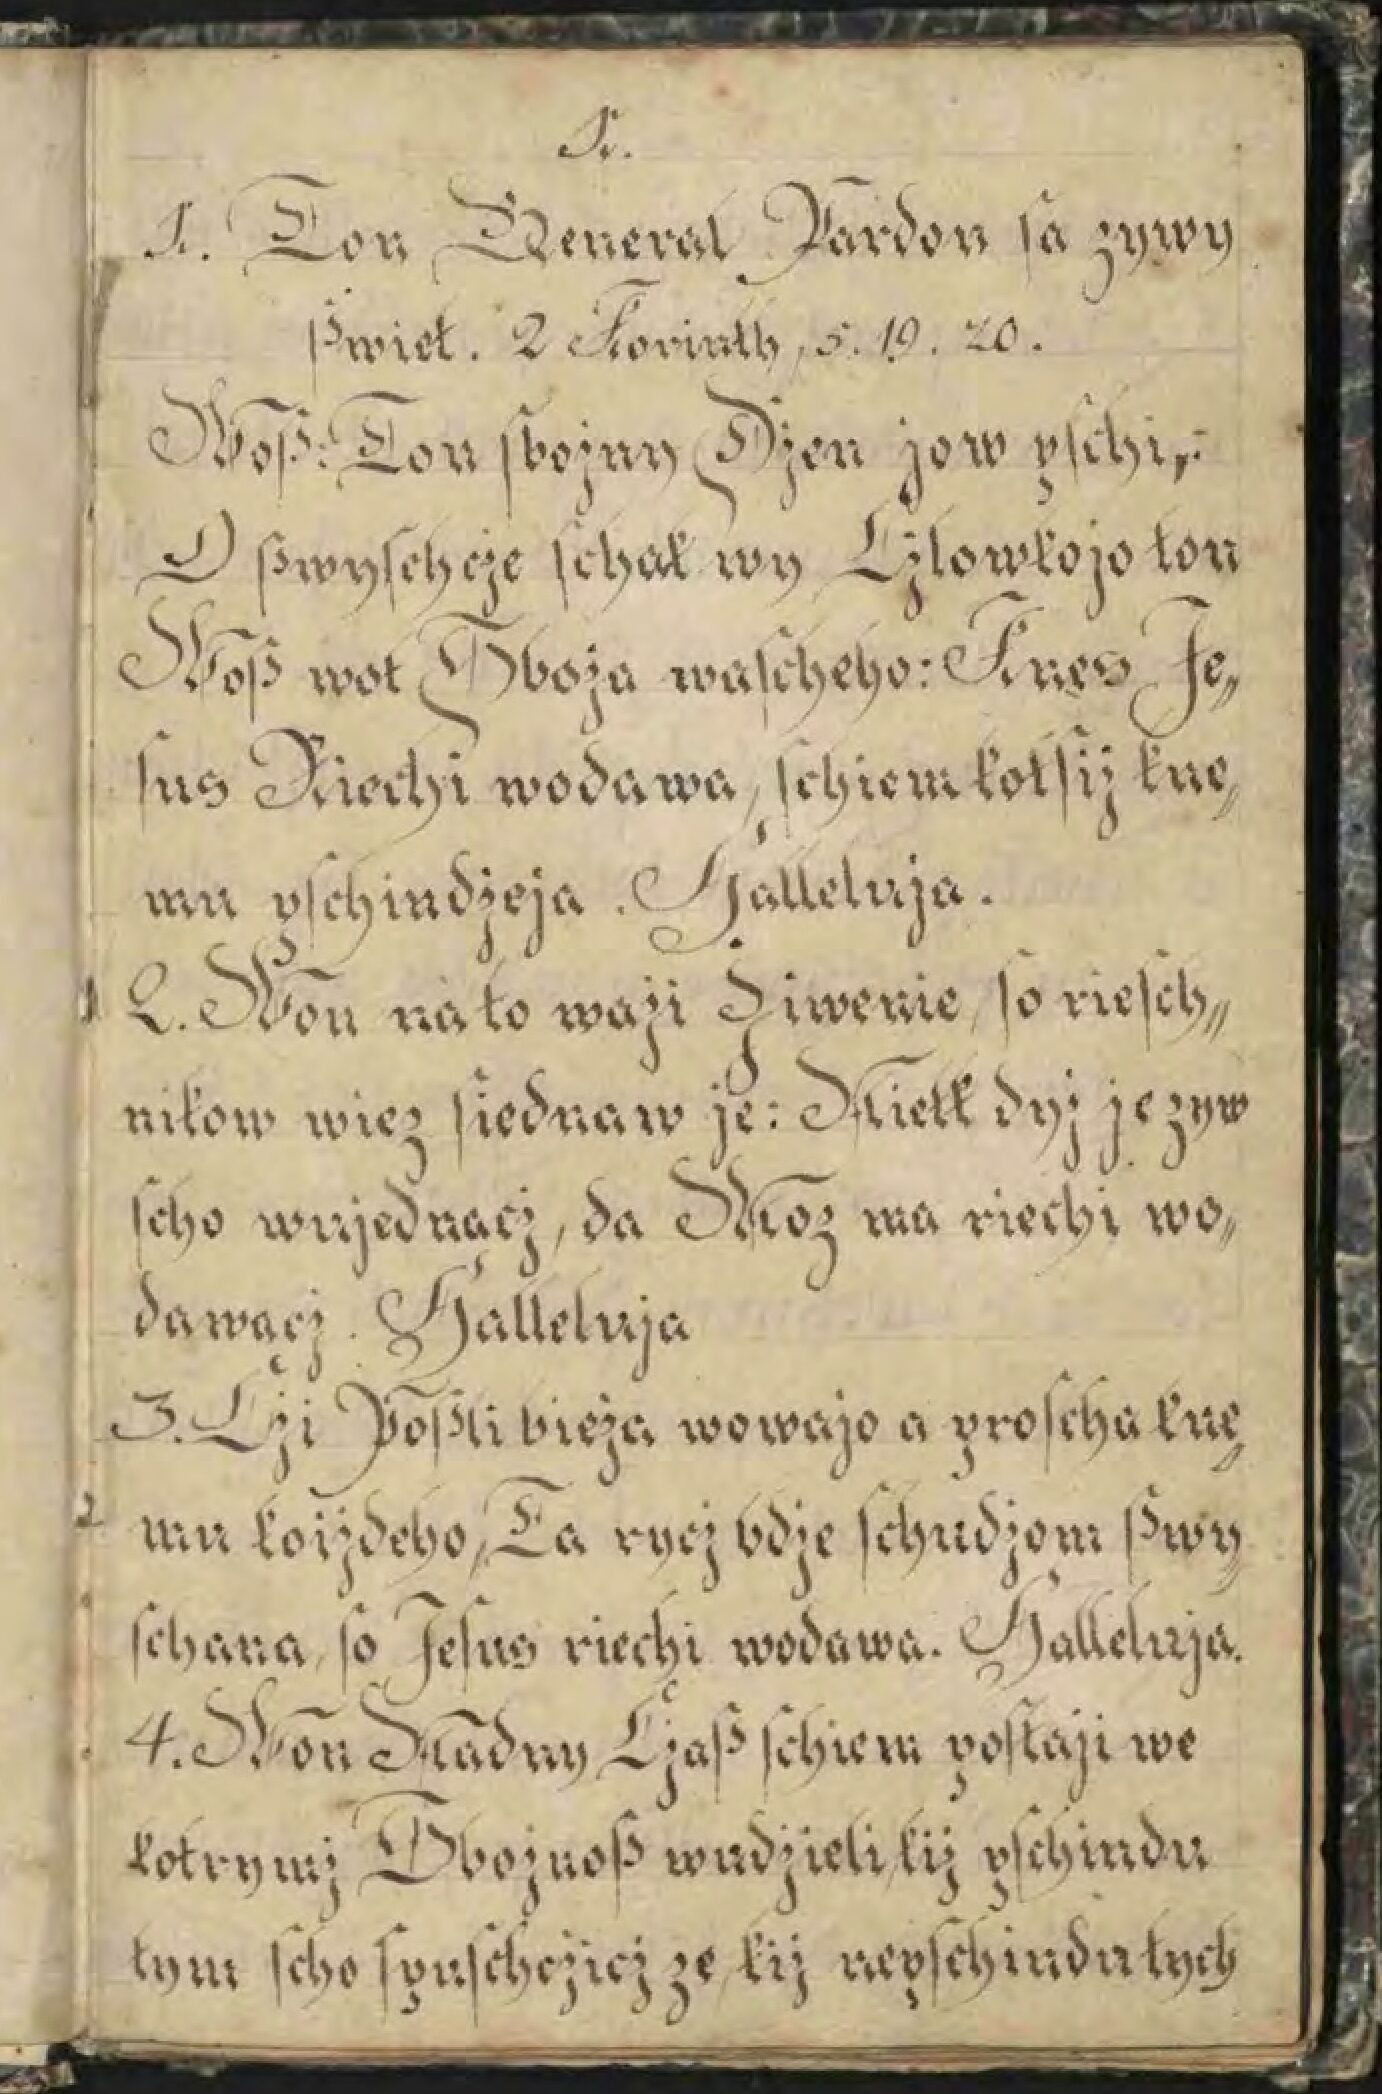 1.
1. Ton General Pardon sa zywy
ßwiet. 2 Korinth, 5. 19. 20.
Woß: Ton sbožny Džen jow pschi,:
O ßwyschcže schak wy Cžlowkojo ton
Woß wot Boža wascheho: Knes Je„
sus Riechi wodawa, schiem kotsiž kne„
mu pschindžeja. Halleluja.
2. Won na to waži Žiwenie, so riesch„
nikow wiez siednaw je: Kietk dyž je zyw
scho wujednacž, da Moz ma riechi wo„
dawacž. Halleluja
3. Cži Poßli bieža wowajo a proscha kne„
mu koiždeho, Ta rycž bdže schudžom ßwy„
schana, so Jesus riechi wodawa. Halleluja.
4. Won Knadny Cžaß schiem postaji we
kotrymž Bbožnoß wudžieli, kiž pschindu
tym scho spuschcžicž ze, kiž nepschindu tych